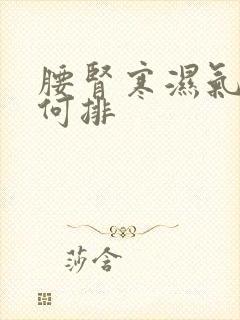 腰腎寒濕氣
何排
莎含